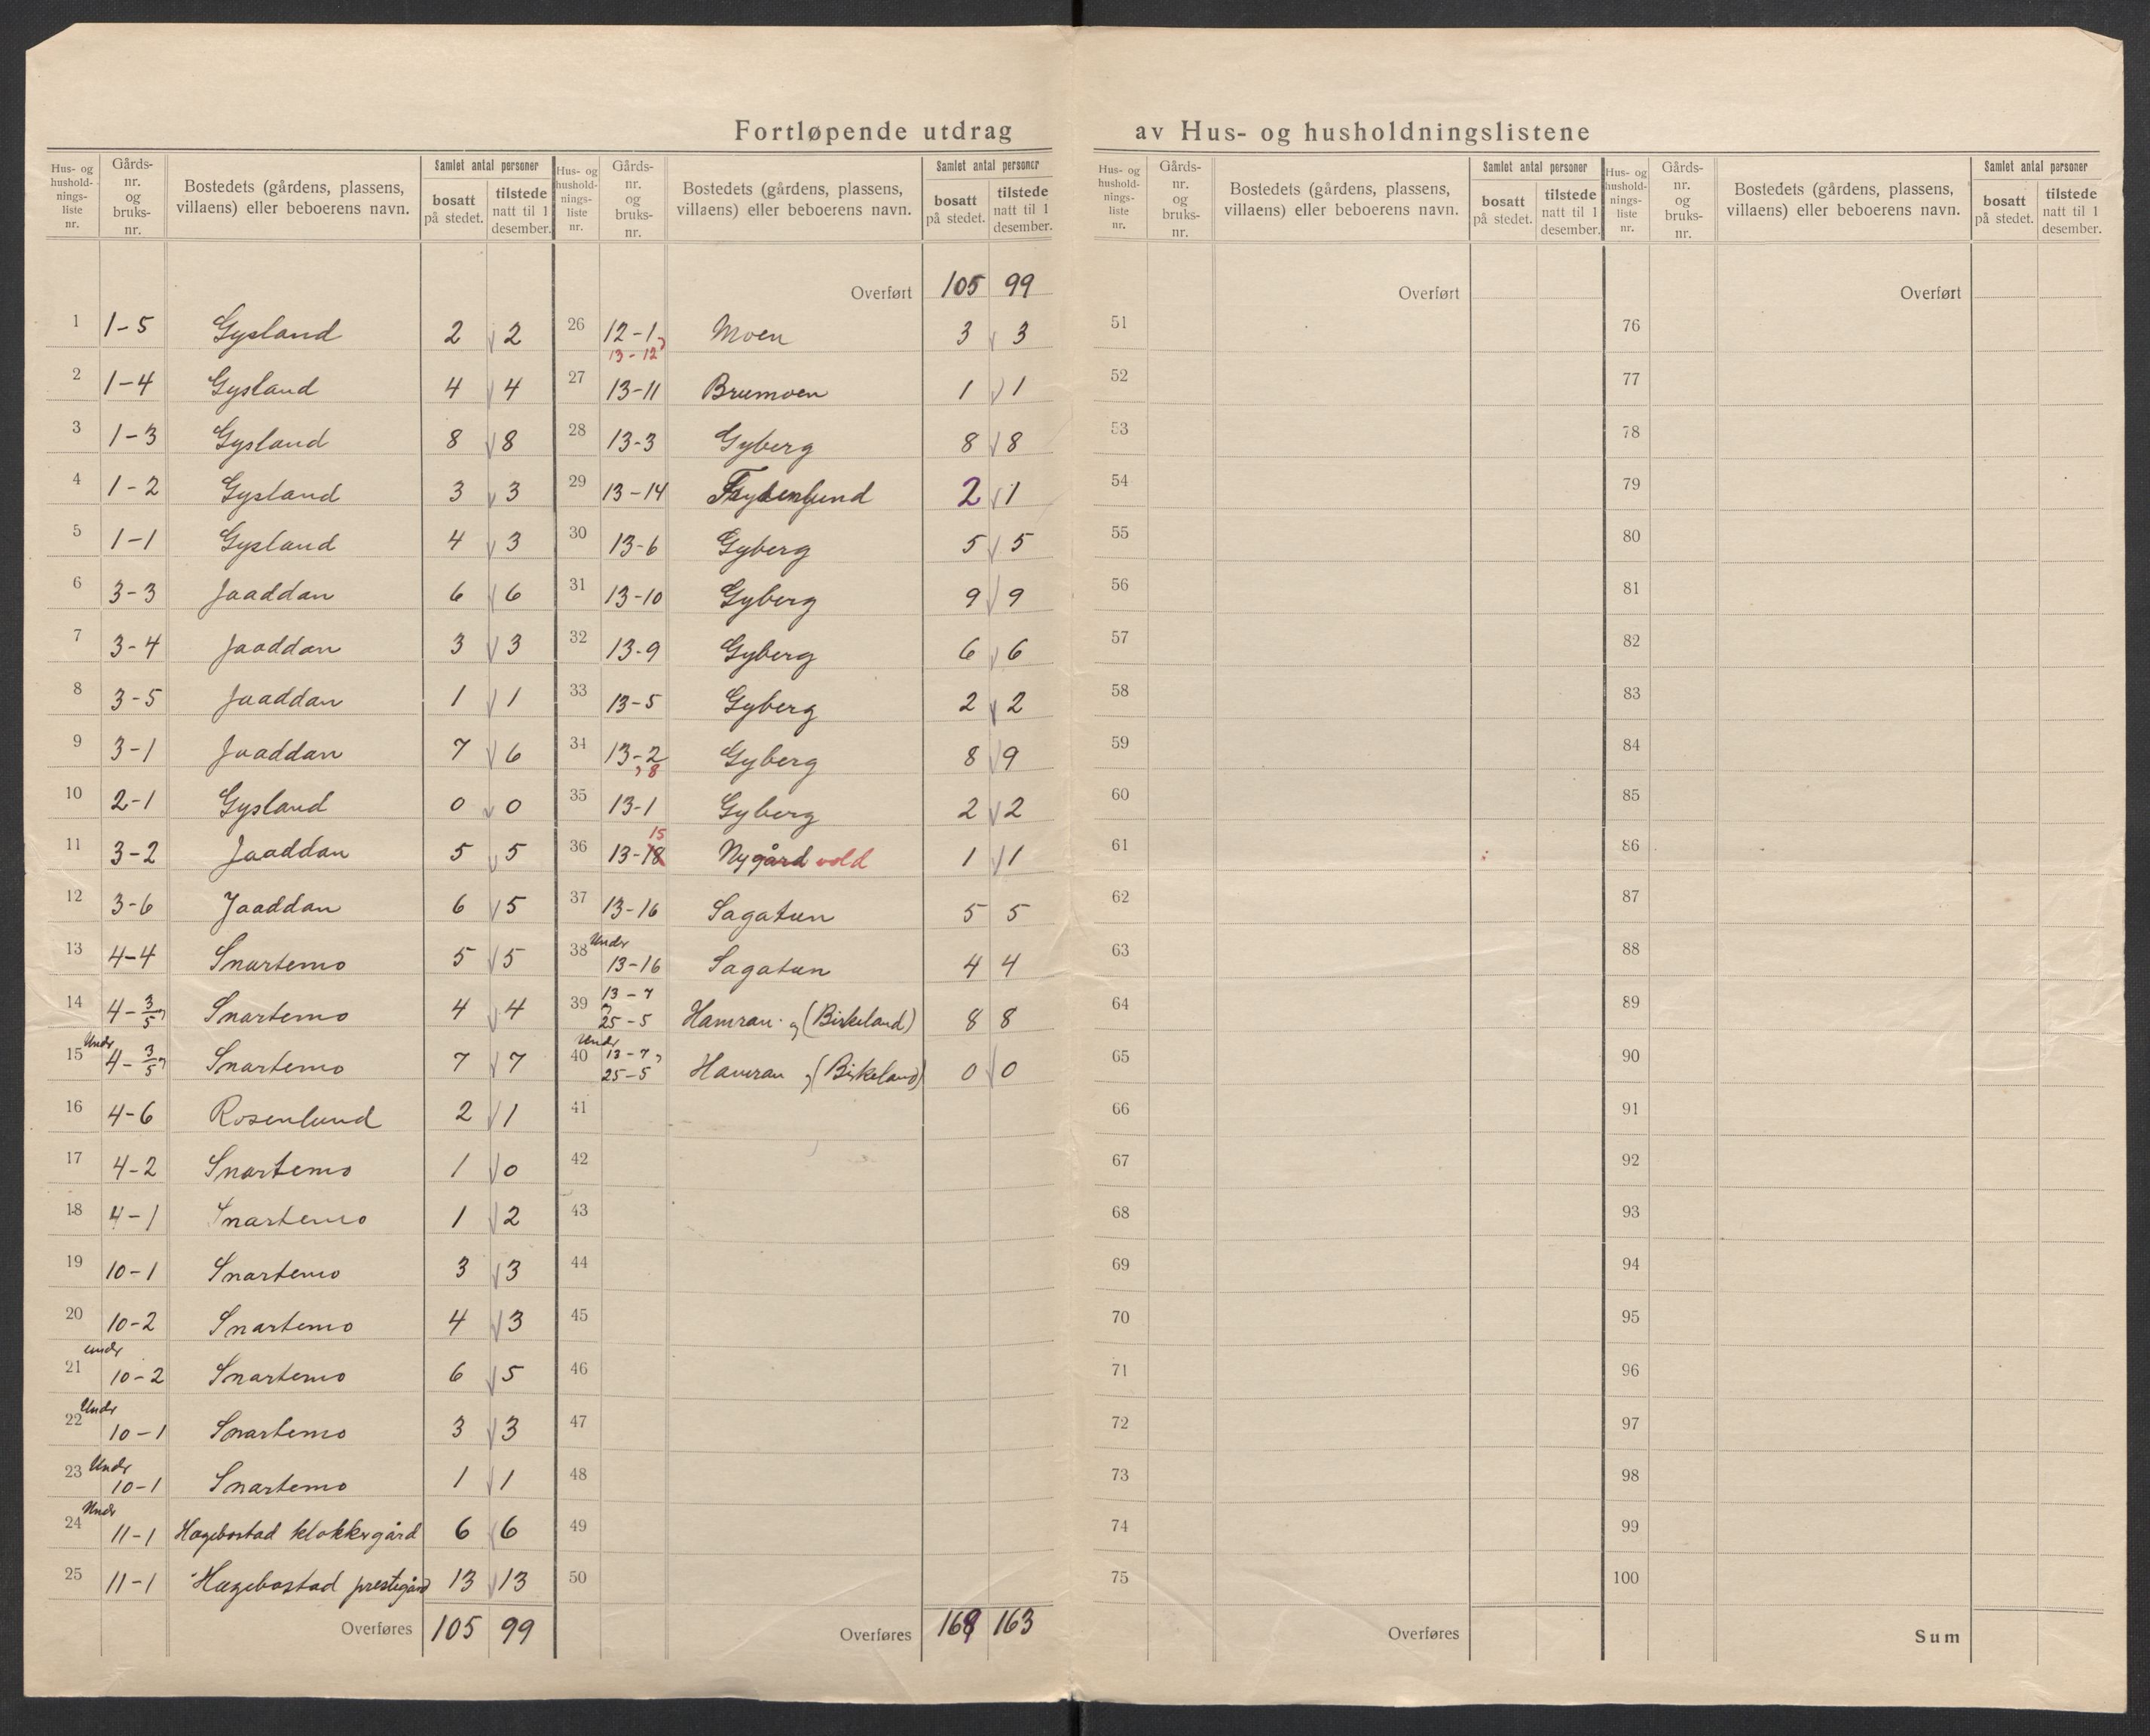 Fortløpende utdrag av Hus- og husholdningslistene
Hus- og hushold-nings-liste nr. Gårds-nr. og bruks-nr. Bostedets (gårdens, plassens, villaens) eller beboerens navn. Samlet antal personer bosatt på stedet. tilstede natt til 1 desember.
1 1-5 Gysland 2 2
2 1-4 Gysland 4 4
3 1-3 Gysland 8 8
4 1-2 Gysland 3 3
5 1-1 Gysland 4 3
6 3-3 Jaaddan 6 6
7 3-4 Jaaddan 3 3
8 3-5 Jaaddan 1 1
9 3-1 Jaaddan 7 6
10 2-1 Gysland 0 0
11 3-2 Jaaddan 5 5
12 3-6 Jaaddan 6 5
13 4-4 Snartemo 5 5
14 4-3/5 Snartemo 4 4
15 Undr 4-3/5 Snartemo 7 7
16 4-6 Rosenlund 2 1
17 4-2 Snartemo 1 0
18 4-1 Snartemo 1 2
19 10-1 Snartemo 3 3
20 10-2 Snartemo 4 3
21 undr 10-2 Snartemo 6 5
22 Undr 10-1 Snartemo 3 3
23 Undr 10-1 Snartemo 1 1
24 Undr 11-1 Hægebostad klokkergård 6 6
25 11-1 Hægebostad prestegård 13 13
Overføres 105 99
Hus- og hushold-nings-liste nr. Gårds-nr. og bruks-nr. Bostedets (gårdens, plassens, villaens) eller beboerens navn. Samlet antal personer bosatt på stedet. tilstede natt til 1 desember.
Overført 105 99
26 12-1, 13-12 Moen 3 3
27 13-11 Brumoen 1 1
28 13-3 Gyberg 8 8
29 13-14 2 1
30 13-6 Gyberg 5 5
31 13-10 Gyberg 9 9
32 13-9 Gyberg 6 6
33 13-5 Gyberg 2 2
34 13-2, 8 Gyberg 8 9
35 13-1 Gyberg 2 2
36 13-18 15 Nygård vold 1 1
37 13-16 Sagatun 5 5
38 Undr 13-16 Sagatun 4 4
39 13-7, 25-5 Hamran og (Birkeland) 8 8
40 Undr 13-7, 25-5 Hamran , (Birkeland) 0 0
41
42
43
44
45
46
47
48
49
50
Overføres 169 163
Hus- og hushold-nings-liste nr. Gårds-nr. og bruks-nr. Bostedets (gårdens, plassens, villaens) eller beboerens navn. Samlet antal personer bosatt på stedet. tilstede natt til 1 desember.
Overført
51
52
53
54
55
56
57
58
59
60
61
62
63
64
65
66
67
68
69
70
71
72
73
74
75
Overføres
Hus- og hushold-nings-liste nr. Gårds-nr. og bruks-nr. Bostedets (gårdens, plassens, villaens) eller beboerens navn. Samlet antal personer bosatt på stedet. tilstede natt til 1 desember.
Overført
76
77
78
79
80
81
82
83
84
85
86
87
88
89
90
91
92
93
94
95
96
97
98
99
100
Sum